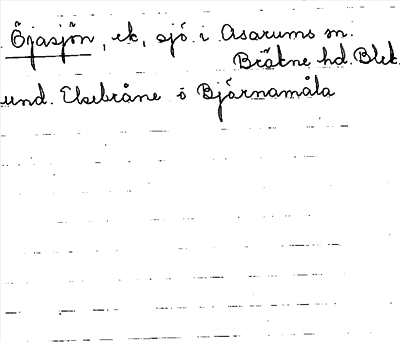 Öjasjön, ek, sjö i Asarums sn.
Bräkne hd. Blek.
und. Elsebråne o Björnamåla